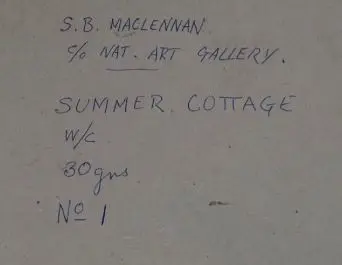 S. B. MACLENNAN
c/o NAT. ART GALLERY.
SUMMER COTTAGE
W/C
30gns
No 1